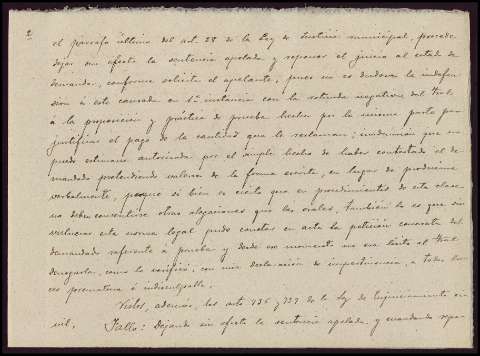 2
el párrafo último del art. 28 de la Ley de Justicia municipal, procede
dejar sin efecto la sentencia apelada y reponer el juicio al estado de
demanda, conforme solicita el apelante, pues no es dudosa la indefen-
sión á éste causada en 1ª instancia con la rotunda negativa del Trib.
á la proposición y práctica de prueba hecha por la misma parte para
justificar el pago de la cantidad que le reclaman; indefensión que no
puede estimarse autorizada por el simple hecho de haber contestado el de
mandado pretendiendo valerse de la forma escrita, en lugar de producirse
verbalmente, porque si bien es cierto que en procedimientos de esta clase
no deben consentirse otras alegaciones que las orales, también lo es que sin
violencias esta norma legal pudo constar en acta la petición concreta del
demandado referente á prueba y desde ese momento no era lícito al Trib.
denegarla, como lo verificó, con una declaración de impertinencia, a todas lu-
ces prematura é indisculpable.
Vistos, además, los arts 435 y 737 de la Ley de Enjuiciamiento ci-
vil, Fallo: Dejando sin efecto la sentencia apelada, y mandando repo-